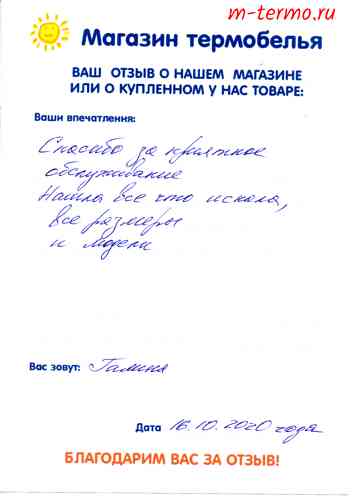 m-termo.ru
Магазин термобелья
ВАШ ОТЗЫВ О НАШЕМ МАГАЗИНЕ
ИЛИ О КУПЛЕННОМ У НАС ТОВАРЕ:
Ваши впечатления:
Спасибо за приятное
обслуживание
Нашла все что искала,
все размеры
и модели
Вас зовут: Галина
Дата 16.10.2020 года
БЛАГОДАРИМ ВАС ЗА ОТЗЫВ!